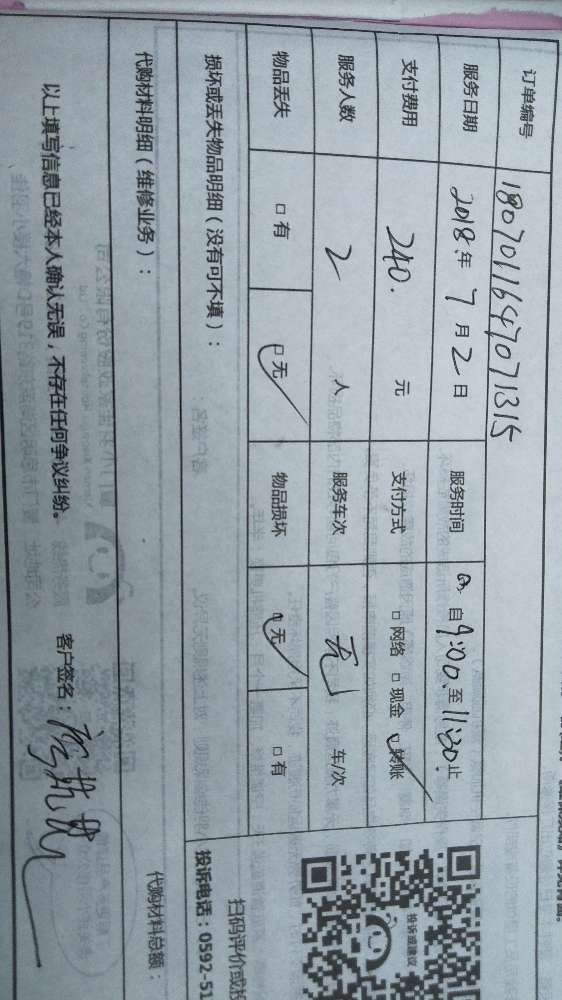 订单编号 180701164707131​5
服务日期 2018年7月2日 服务时间 自9:00至11:30止
支付费用 240. 元 支付方式 □网络 □现金 ☑转账
服务人数 2 人 服务车次 无 车/次
物品丢失 □有 ☑无 物品损坏 ☑无 □有
损坏或丢失物品明细(没有可不填):
代购材料明细(维修业务): 代购材料总额:
以上填写信息已经本人确认无误,不存在任何争议纠纷。 客户签名:
投诉或建议
扫码评价或投
投诉电话:0592-51